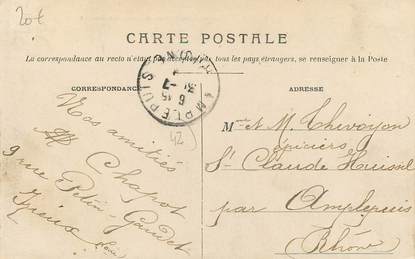 20€
CARTE POSTALE
La correspondance au recto n'étant pas acceptée par tous les pays étrangers, se renseigner à la Poste
CORRESPONDANCE
ADRESSE
AMPLEPUIS
6-15
31-7
42
Nos amitiés
Chapot
9 rue Petin-Gaudet
Izieux (Loire)
Mme et M. Thevoyon
épiciers
St Claude Huissel
par Amplepuis
Rhône